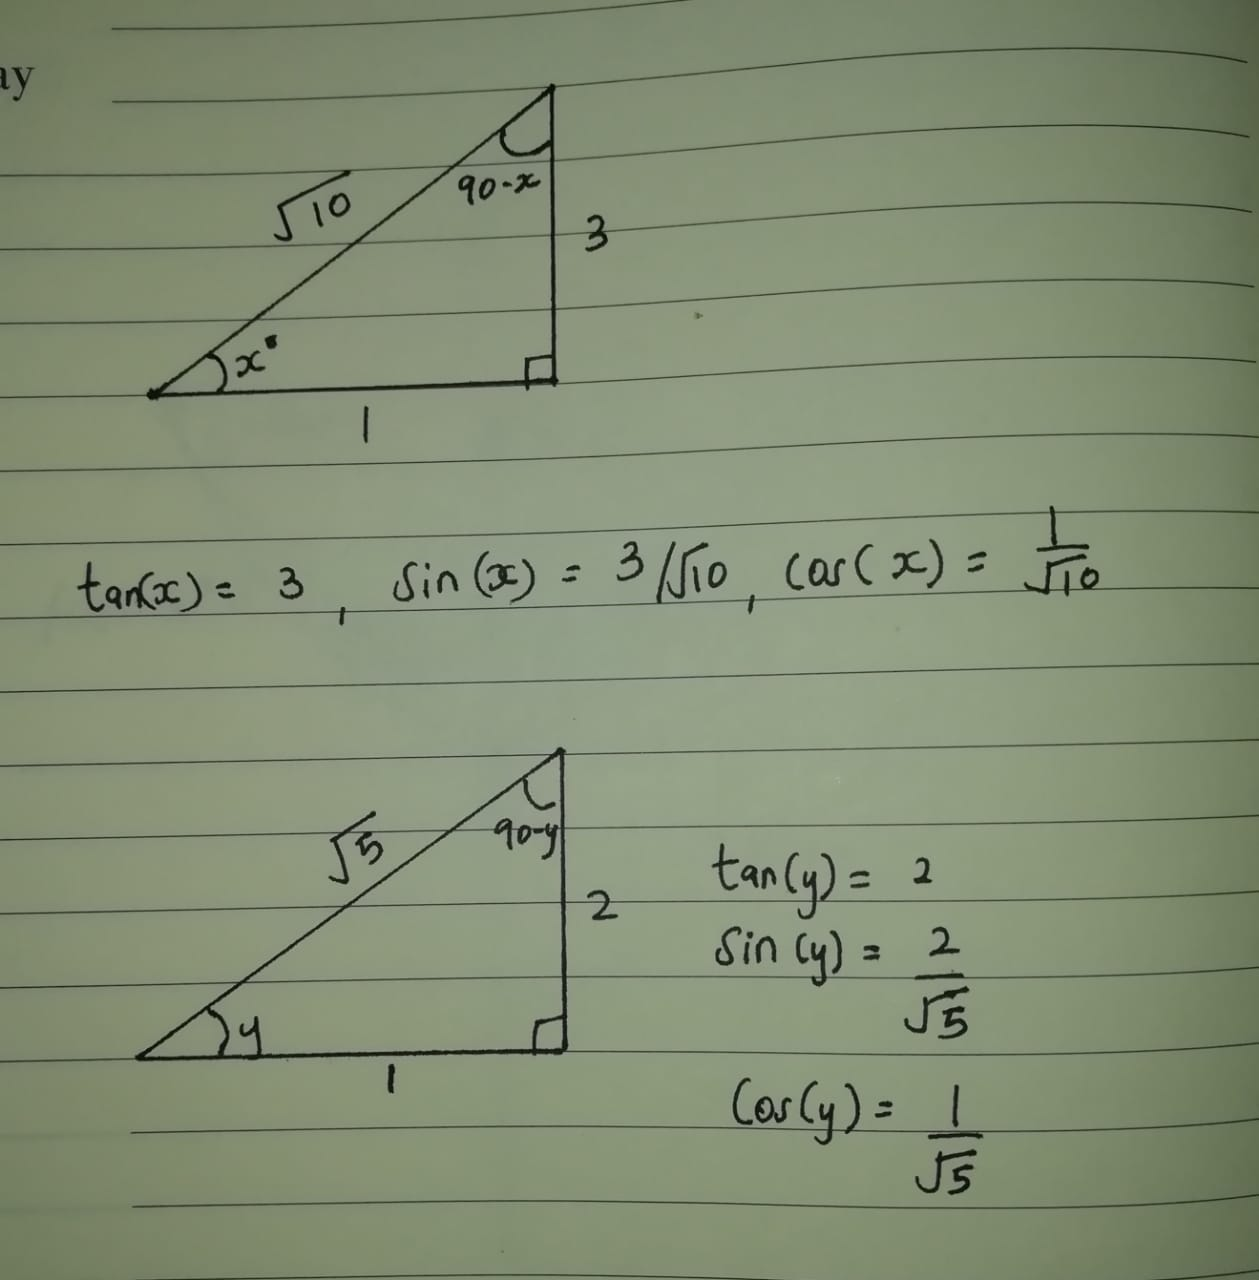 ay
√10
90-x
3
x°
1
tan(x) = 3 , sin(x) = 3/√10 , cos(x) = 1/√10
√5
90-y
2
y
1
tan(y) = 2
sin(y) = 2/√5
cos(y) = 1/√5